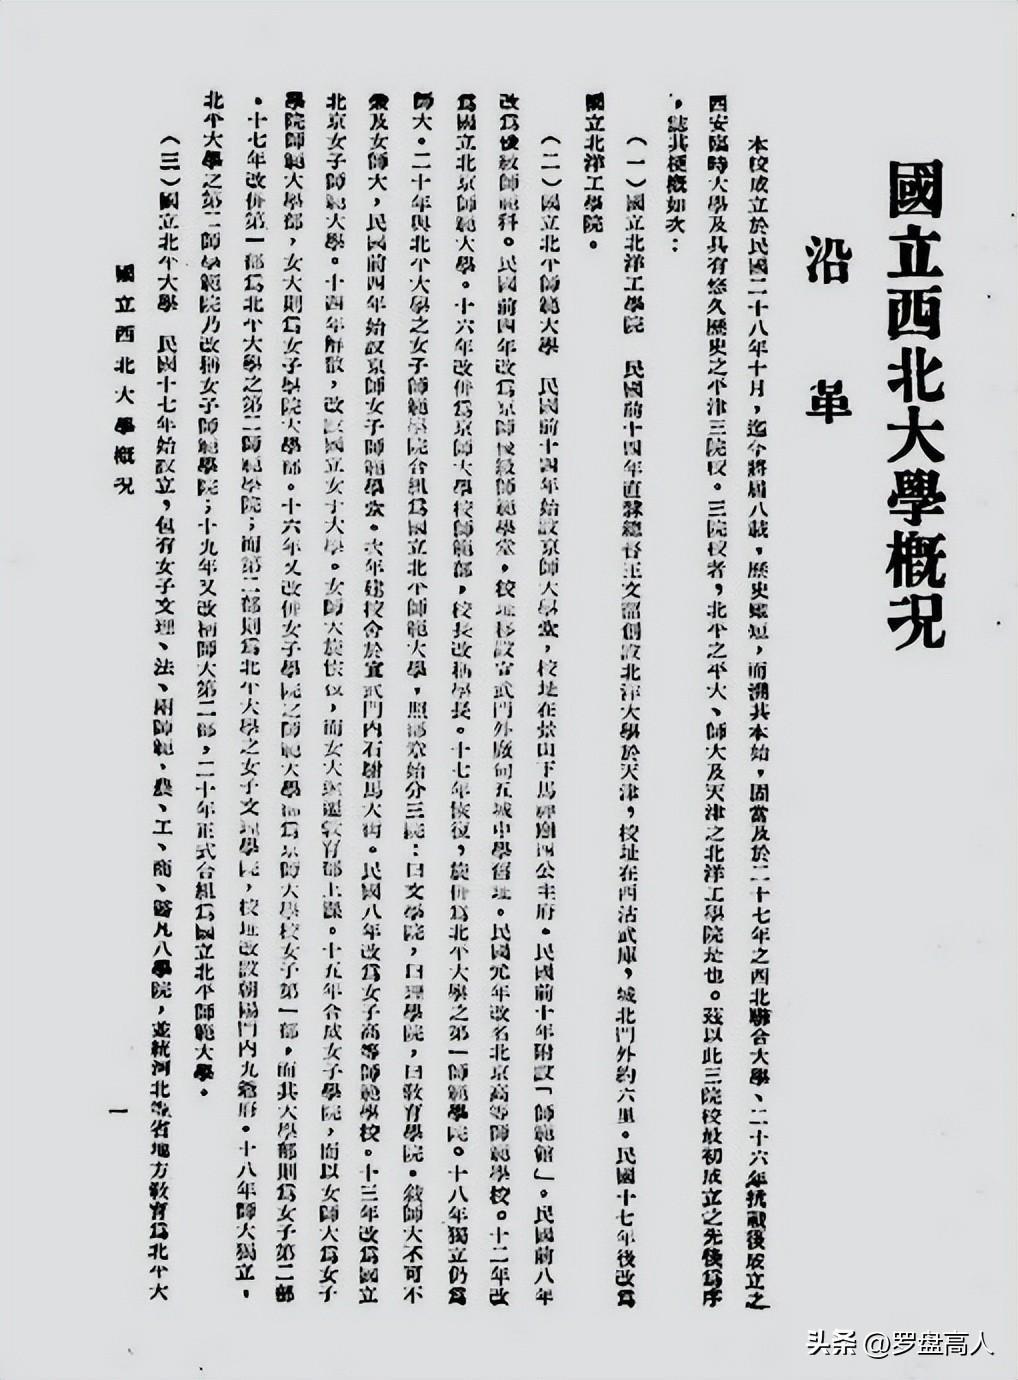 國立西北大學概況
沿革
本校成立於民國二十八年十月，迄今將屆八載，歷史雖短，而溯其本始，固當及於二十七年之西北聯合大學、二十六年抗戰後成立之
西安臨時大學及具有悠久歷史之平津三院校。三院校者，北平之平大、師大及天津之北洋工學院是也。茲以此三院校最初成立之先後為序
，誌其梗概如次：
（一）國立北洋工學院　民國前十四年直隸總督王文韶創設北洋大學於天津，校址在西沽武庫，城北門外約六里。民國十七年後改為
國立北洋工學院。
（二）國立北平師範大學　民國前十四年始設京師大學堂，校址在景山下馬神廟四公主府。民國前十年附設「師範館」。民國前八年
改為優級師範科。民國前四年改為京師優級師範學堂，校址移設宣武門外廠甸五城中學舊址。民國元年改名北京高等師範學校。十二年改
為國立北京師範大學。十六年改併為京師大學校師範部，校長改稱學長。十七年恢復，旋併為北平大學之第一師範學院。十八年獨立仍為
師大。二十年與北平大學之女子師範學院合組為國立北平師範大學，照部章始分三院：曰文學院，曰理學院，曰教育學院。敍師大不可不
兼及女師大，民國前四年始設京師女子師範學堂。次年建校舍於宣武門內石駙馬大街。民國八年改為女子高等師範學校。十三年改為國立
北京女子師範大學。十四年解散，改設國立女子大學。女師大旋恢復，而女大遷教育部上課。十五年合成女子學院，而以女師大為女子
學院師範大學部，女大則為女子學院大學部。十六年又改併女子學院之師範大學部為京師大學校女子第一部，而其大學部則為女子第二部
。十七年改併第一部為北平大學之第二師範學院；而第二部則為北平大學之女子文理學院，校址改設朝陽門內九爺府。十八年師大獨立，
北平大學之第二師範學院乃改稱女子師範學院；十九年又改稱師大第二部，二十年正式合組為國立北平師範大學。
（三）國立北平大學　民國十七年始設立，包有女子文理、法、兩師範、農、工、商、醫凡八學院，並統河北等省地方教育為北平大
國立西北大學概況
一
头条 @罗盘高人